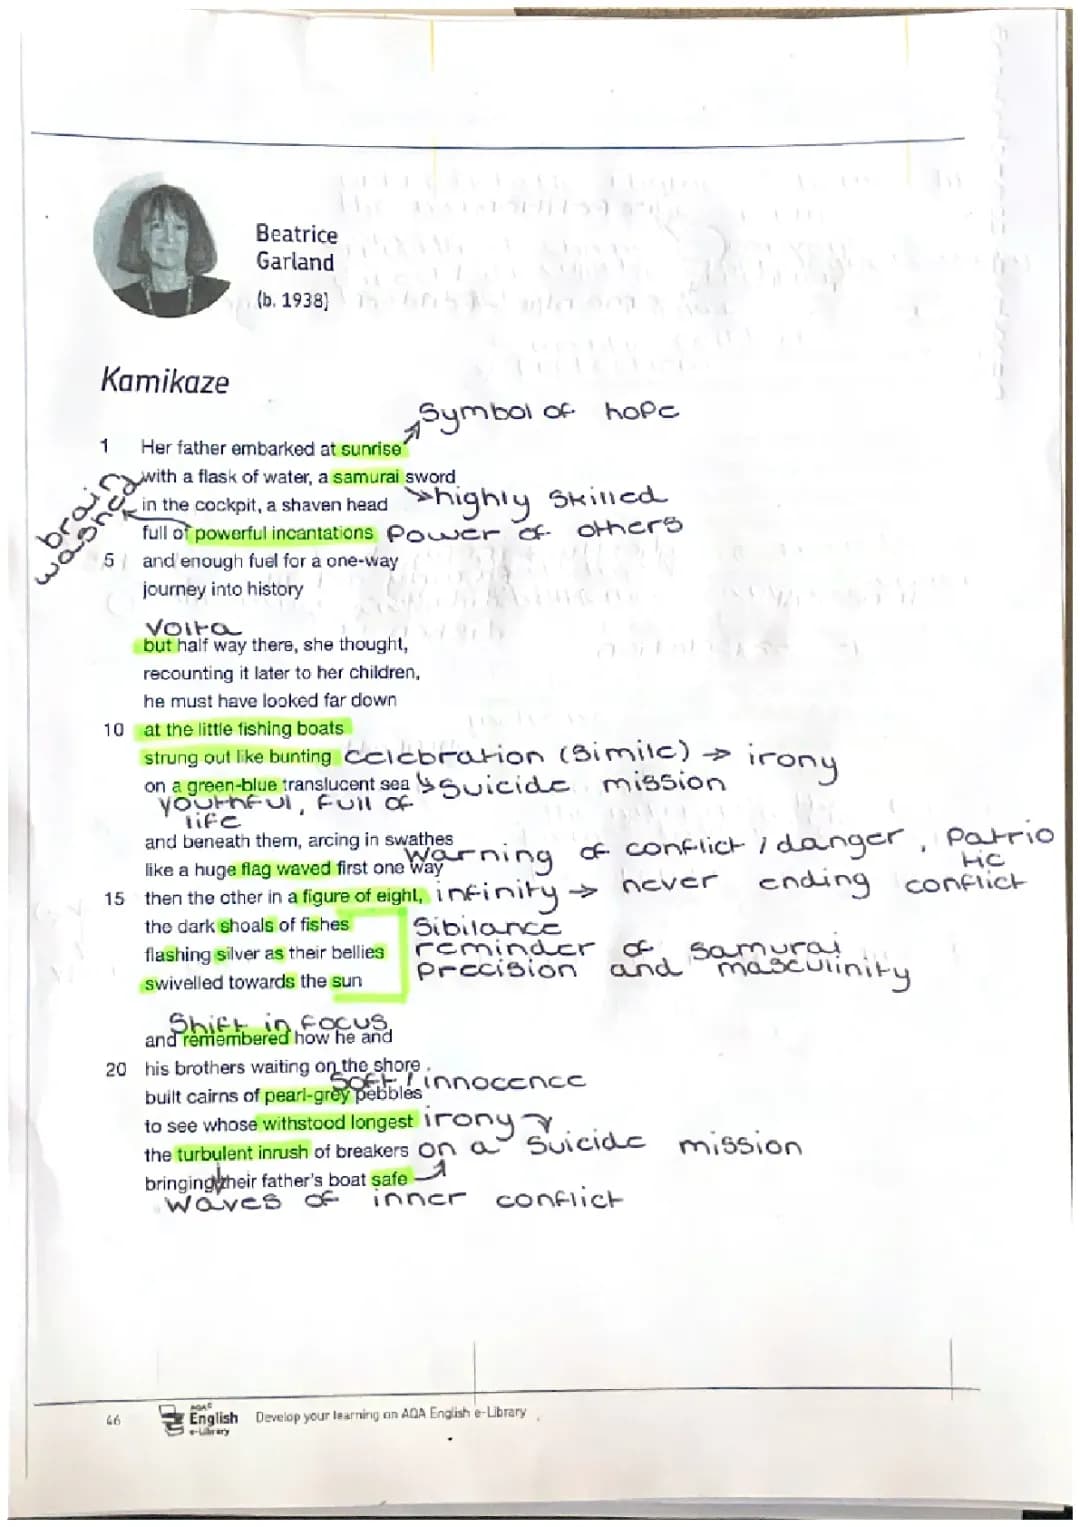 Beatrice
Garland
(b. 1938)
Kamikaze
Symbol of hope
1 Her father embarked at sunrise
with a flask of water, a samurai sword
brain washed
in the cockpit, a shaven head
highly skilled
full of powerful incantations Power of others
5 and enough fuel for a one-way
journey into history
Volta
but half way there, she thought,
recounting it later to her children,
he must have looked far down
10 at the little fishing boats
strung out like bunting celebration (simile) → irony
on a green-blue translucent sea ↳ suicide mission
youthful, full of
life
and beneath them, arcing in swathes
Warning of conflict / danger, Patrio
tic
like a huge flag waved first one way
15 then the other in a figure of eight, infinity → never ending conflict
the dark shoals of fishes Sibilance
flashing silver as their bellies reminder of samurai
swivelled towards the sun precision and masculinity
Shift in focus
and remembered how he and
20 his brothers waiting on the shore
soft / innocence
built cairns of pearl-grey pebbles
to see whose withstood longest irony
the turbulent inrush of breakers on a suicide mission
bringing their father's boat safe
Waves of inner conflict
46
AQA
English
e-Library
Develop your learning on AQA English e-Library